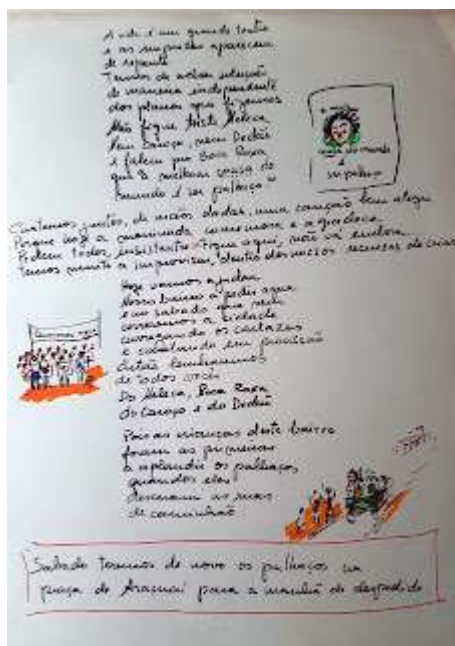 A vida é um grande teatro
e as surpresas aparecem
de repente
Termos de achar solução
de maneira independente
dos planos que fizemos
Não fique triste Meleca
Nem Caroço, nem Dodói
e falem pro Boca Rasa
que a melhor coisa do
mundo é ser palhaço
coisa do mundo
é
ser palhaço
Cantemos juntos, de mãos dadas, uma canção bem alegre
Porque hoje a comemora e agradece
Pedem todos, insistentes - Fique aqui, não vá embora
Temos muito a improvisar, dentro dos nossos recursos de criar
Hoje vamos ajudar
Nosso bairro a pedir água
e no sábado que vem
corremos a cidade
carregando os cartazes
e cantando em procissão
então lembraremos
de todos vocês
Do Meleca, Boca Rasa
do Caroço e do Dodói
Pois as crianças deste bairro
foram as primeiras
a aplaudir os palhaços
quando eles
desceram as ruas
de caminhão
Sabado teremos de novo os palhaços na
praça do para a manhã de despedida